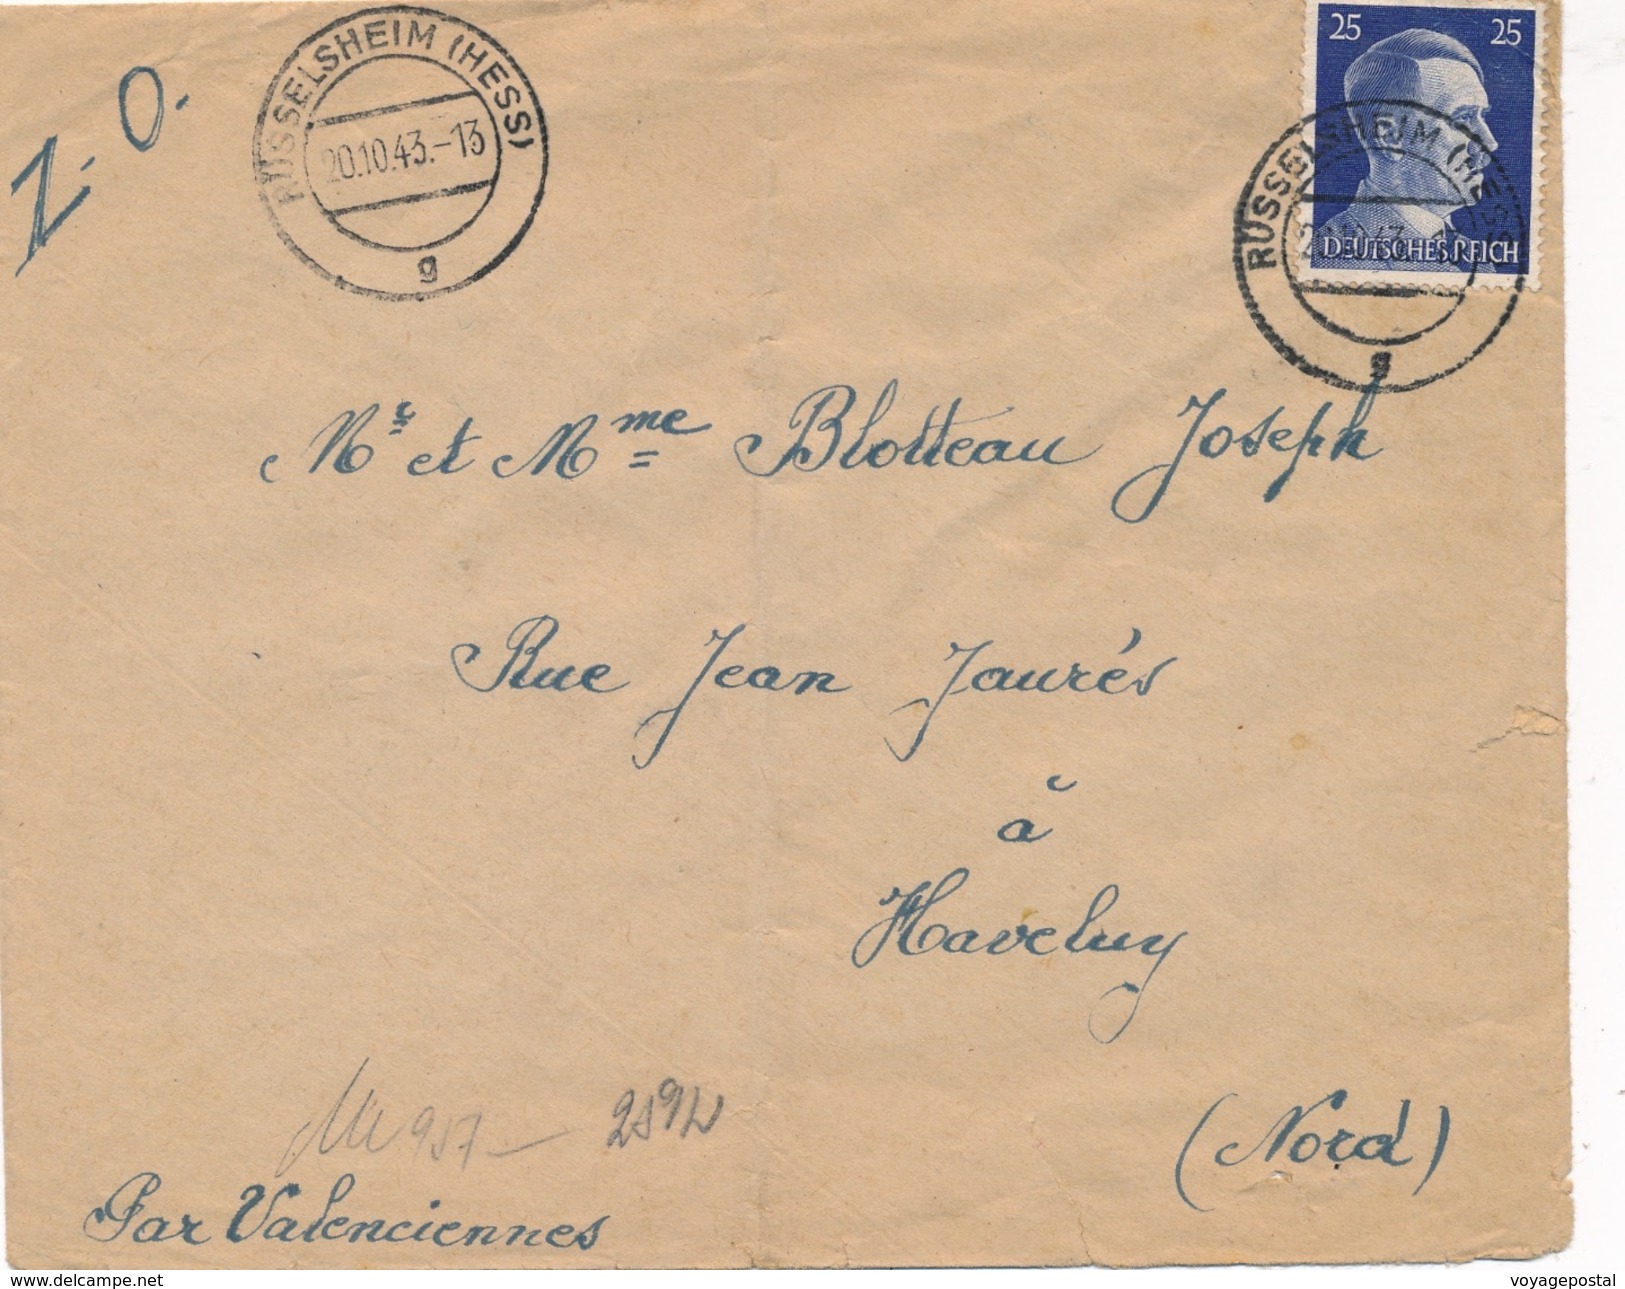 Z. O.
RÜSSELSHEIM (HESS)
20.10.43.-13
g
25 25
DEUTSCHES REICH
RÜSSELSHEIM (HESS)
g
Mr et Mme Blotteau Joseph
Rue Jean Jaurés
à
Haveluy
(Nord)
Par Valenciennes
www.delcampe.net
voyagepostal